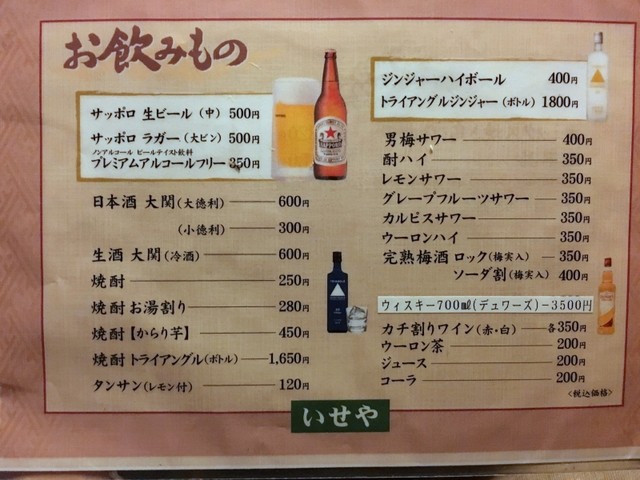 お飲みもの
サッポロ 生ビール (中) 500円
サッポロ ラガー (大ビン) 500円
ノンアルコール ビールテイスト飲料
プレミアムアルコールフリー 350円
日本酒 大関 (大徳利) 600円
(小徳利) 300円
生酒 大関 (冷酒) 600円
焼酎 250円
焼酎お湯割り 280円
焼酎【からり芋】 450円
焼酎トライアングル(ボトル) 1,650円
タンサン(レモン付) 120円
ジンジャーハイボール 400円
トライアングルジンジャー (ボトル) 1800円
男梅サワー 400円
酎ハイ 350円
レモンサワー 350円
グレープフルーツサワー 350円
カルピスサワー 350円
ウーロンハイ 350円
完熟梅酒 ロック(梅実入) 350円
ソーダ割(梅実入) 400円
ウィスキー700㎖(デュワーズ)-3500円
カチ割りワイン(赤・白) 各350円
ウーロン茶 200円
ジュース 200円
コーラ 200円
<税込価格>
いせや